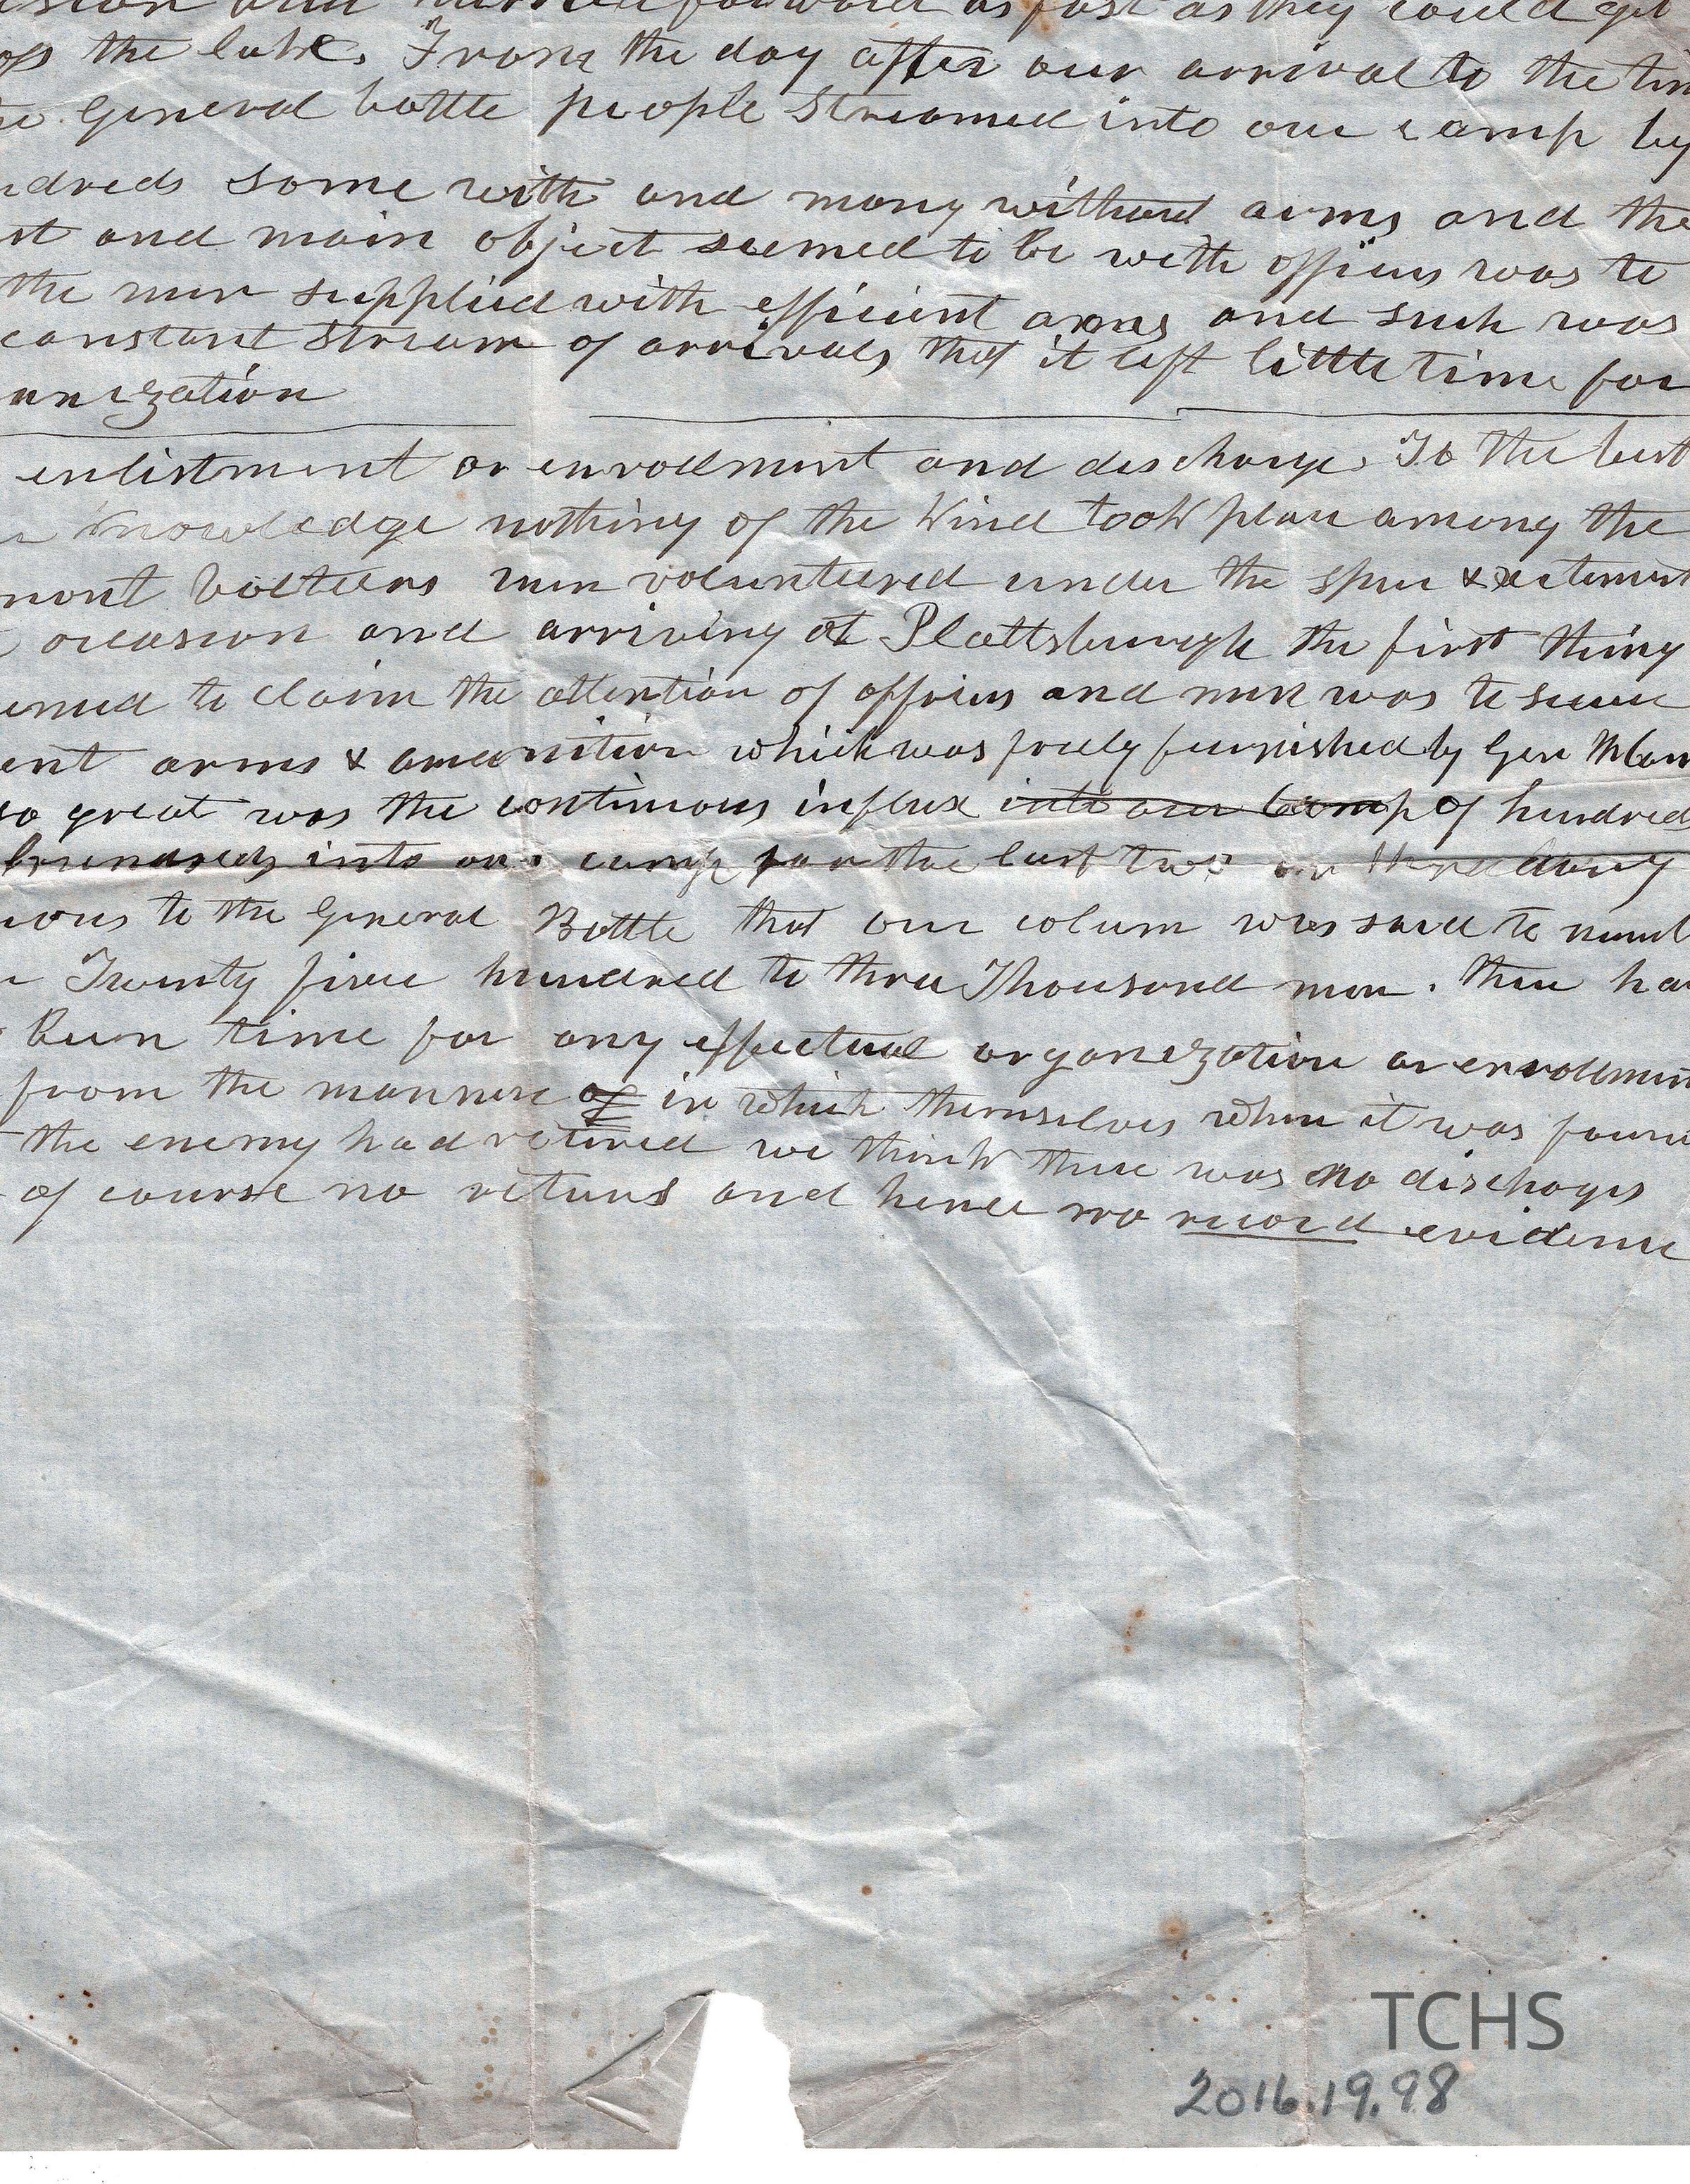 forward as fast as they could get
the lake. From the day after our arrival to the
General battle people streamed into our camp by
some with and many without arms and the
and main object seemed to be with officers was to
the men supplied with efficient arms and such was
constant stream of arrivals that it left little time for
anization
enlistment or enrollment and discharge. To the best
knowledge nothing of the kind took place among the
mont men volunteered under the spur & exitement
occasion and arriving at Plattsburgh the first thing
to claim the attention of officers and men was to secure
ent arms & amunition which was freely furnished by Gen
so great was the continuous influx into our camp of hundred
hundreds into our camp for the last two or three days
to the General Battle that our colum was said to
Twenty five hundred to three Thousand men. there
Been time for any effectual organization or
from the mannere of in which themselves when it was
the enemy had retired we think there was no discharges
of course no returns and hence no record evidence
TCHS
2016.19.98